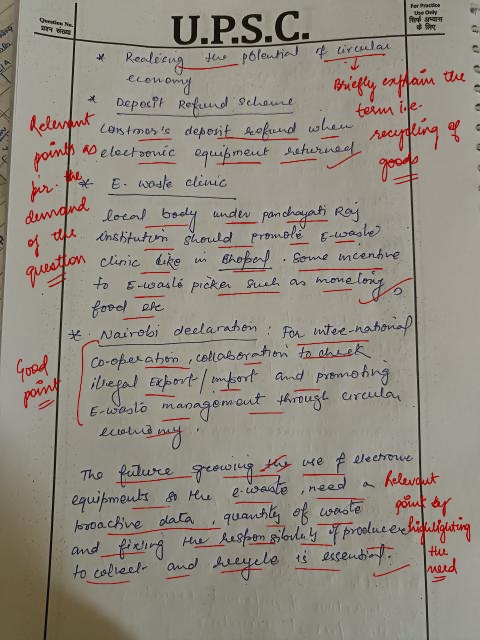 Question No.
प्रश्न संख्या
U.P.S.C.
For Practice
Use Only
सिर्फ अभ्यास
के लिए
* Realising the potential of circular
economy
Briefly explain the
term i.e.
recycling of
goods
* Deposit Refund Scheme
Constmor's deposit refund when
electronic equipment returned
Relevant
points as
per the
demand
of the
question
* E-waste clinic
local body under panchayati Raj
institution should promote E-waste
clinic like in Bhopal. Some incentive
to E-waste picker such as
food etc
* Nairobi declaration: For inter-national
co-operation, collaboration to check
illegal Export/import and promoting
E-waste management through circular
economy.
Good
point
The future growing the use of electronic
equipments so the e-waste, need a
proactive data, quantity of waste
and fixing the responsibility of producer
to collect and recycle is essential.
Relevant
point by
highlighting
the
need